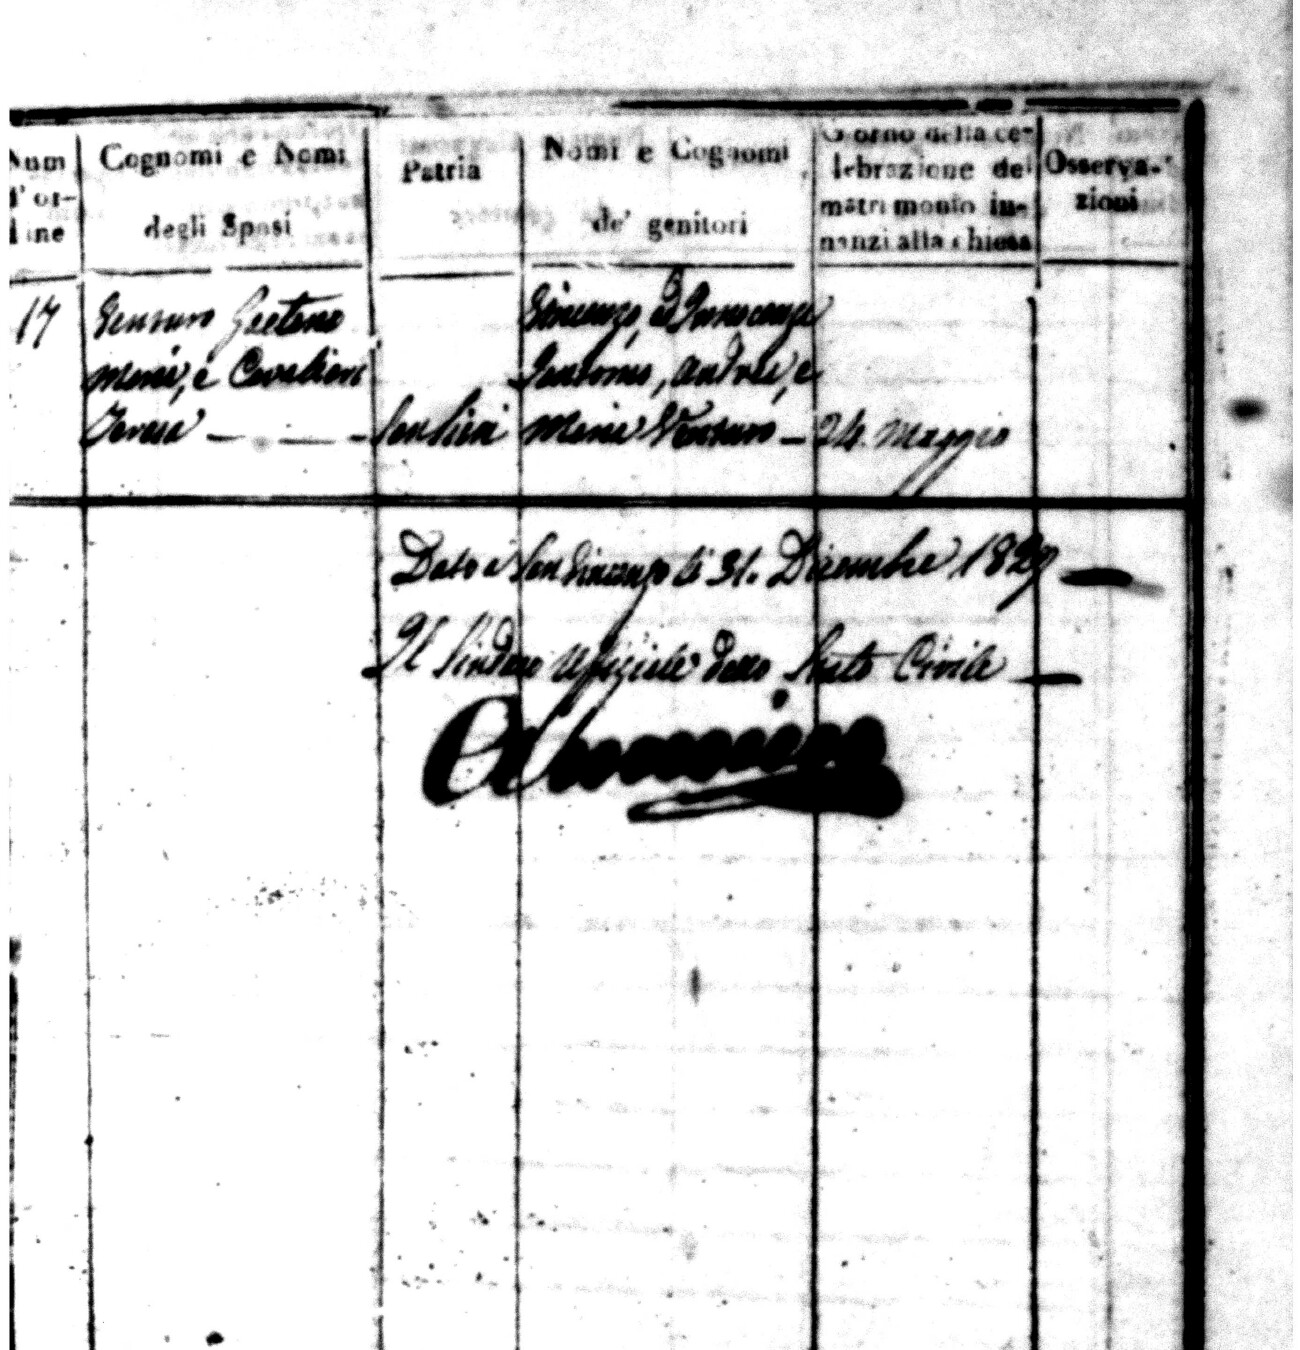 Num
d'or-
dine
Cognomi e Nomi
degli Sposi
Patria
Nomi e Cognomi
de' genitori
Giorno della ce-
lebrazione del
matrimonio in-
nanzi alla chiesa
Osserva-
zioni
17
Gaetano
Maria, e Cavalieri
Teresa
Vincenzo, ed Innocenza
Andrea, e
Maria Venturo
24. Maggio
Dato a San Vincenzo li 31. Dicembre 1829
Il Sindaco Uffiziale dello Stato Civile